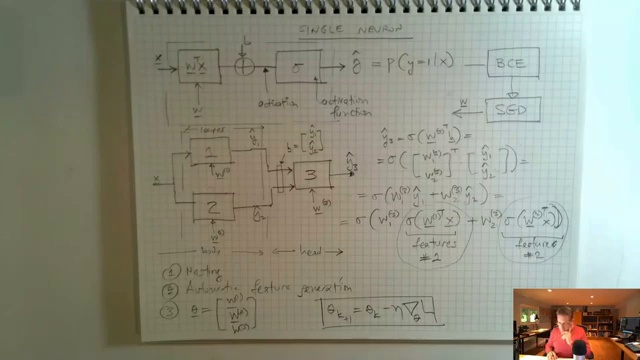 SINGLE NEURON
b
x → wᵀx → ⊕ → σ → ŷ = p(y=1|x) → BCE
w
activation
activation function
SED
w
layer
1
ŷ₁
w⁽¹⁾
x
2
ŷ₂
w⁽²⁾
h = [ŷ₁ ŷ₂]
3
ŷ₃
w⁽³⁾
body
head
ŷ₃ = σ(w⁽³⁾ᵀ h) =
= σ([w₁⁽³⁾ w₂⁽³⁾]ᵀ [ŷ₁ ŷ₂]) =
= σ(w₁⁽³⁾ ŷ₁ + w₂⁽³⁾ ŷ₂) =
= σ(w₁⁽³⁾ σ(w⁽¹⁾ᵀ x) + w₂⁽³⁾ σ(w⁽²⁾ᵀ x))
features #2
features #2
① Nesting
② Automatic feature generation
③ θ = [w⁽¹⁾ w⁽²⁾ w⁽³⁾]
θₖ₊₁ = θₖ - η ∇θ L